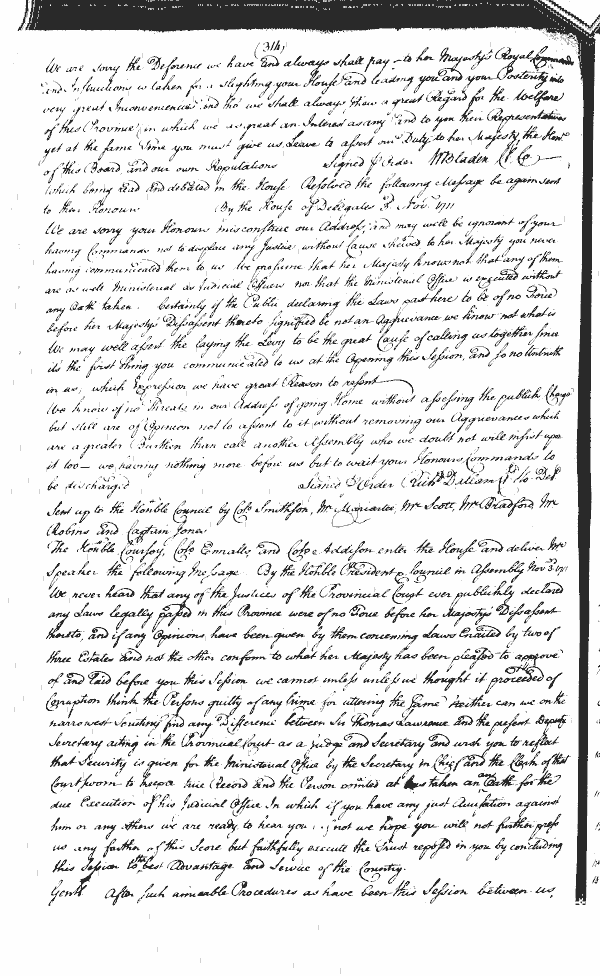 (314)
We are sorry the Deference we have and always shall pay to her Majestys Royal Commands
and Instructions is taken for a slighting your House and leading you and your Posterity into
very great Inconveniences and tho' we shall always shew a great Regard for the Welfare
of this Province in which we as great an Interest as any and to you their Representatives
yet at the same Time you must give us Leave to assert our Duty to her Majesty the Honr.
of this Board, and our own Reputations Signed p Order W Bladen Cl Co
Which being read and debated in the House Resolved the following Message be again sent
to their Honours By the House of Delegates 2d Novr. 1711
We are sorry your Honours misconstrue our Address, and may well be ignorant of your
having Commands not to displace any Justice without Cause shewed to her Majesty you never
having communicated them to us. We presume that her Majesty knows not that any of them
are as well Ministerial as Judicial Officers nor that the Ministerial Office is executed without
any Oath taken. Certainly if the Public declaring the Laws past here to be of no Force
before her Majestys Dissassent thereto signified be not an Aggrievance we know not what is
We may well assert the laying the Levy to be the great Cause of calling us together since
its the first thing you communicated to us at the Opening this Session, and so no Untruth
in us, which Expression we have great Reason to resent
We know of no Threats in our Address of going Home without assessing the publick Charge
but still are of Opinion not to assent to it without removing our Aggrievances which
are a greater Burthen than call another Assembly who we doubt not will insist upon
it too — we having nothing more before us but to wait your Honours Commands to
be discharged Signed p Order Richd. Dallam Cl Ho. Del
Sent up to the Honble Council by Colo Smithson, Mr Macartee, Mr Scott, Mr Bradford Mr
Robins and Captain Jones
The Honble Coursey, Colo Ennalls, and Colo Addison enter the House and deliver Mr
Speaker the following Message. By the Honble President & Council in Assembly Novr 3d 1711
We never heard that any of the Justices of the Provincial Court ever publickly declared
any Laws legally passed in this Province were of no Force before her Majestys Dissassent
thereto, and if any Opinions, have been given by them concerning Laws Enacted by two of
three Estates and not the other conform to what her Majesty has been pleased to approve
of and laid before you this Session we cannot unless unless we thought it proceeded of
Corruption think the Persons guilty of any Crime for uttering the same Neither can we on the
narrowest Scrutiny find any Difference between Sir Thomas Lawrence and the present Deputy
Secretary acting in the Provincial Court as a Judge and Secretary and wish you to reflect
that Security is given for the Ministerial Office by the Secretary in Chief and the Clerk of that
Court sworn to keep a true Record and the Person at has taken an Oath for the
due Execution of his Judicial Office In which if you have any just Accusation against
him or any others we are ready to hear you, if not we hope you will not further press
us any farther of this Score but faithfully execute the Trust reposed in you by concluding
this Session to the best Advantage and Service of the Country.
Gentl. After such amicable Procedures as have been this Session between us,